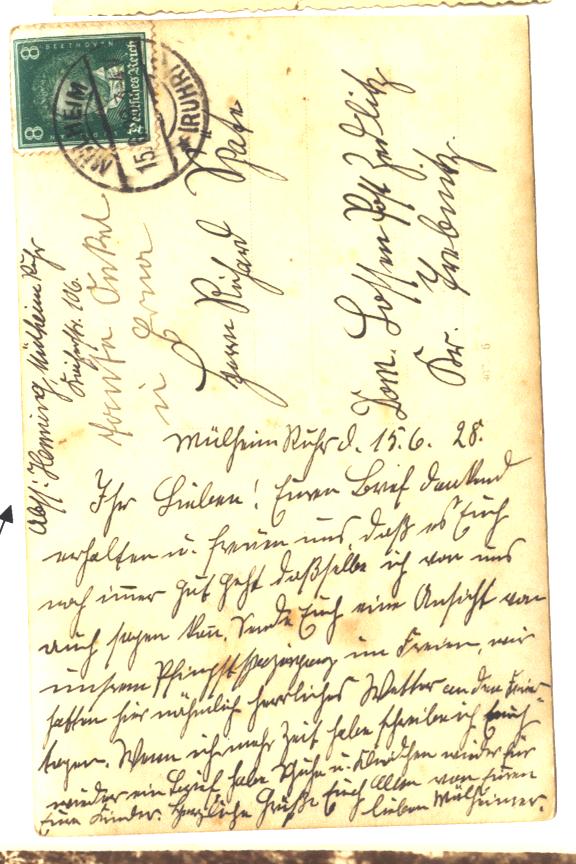 BEETHOVEN
Deutsches Reich
8 8
MÜLHEIM
15.6
(RUHR)
Abs: Henning, Mülheim Ruhr
106.
Tante Onkel
u Erna
Herrn Richard
Dom. Lossen Post Zedlitz
Kr. Trebnitz.
Mülheim Ruhr d. 15.6. 28.
Ihr Lieben! Euren Brief dankend
erhalten u. freuen uns, daß es Euch
noch immer gut geht daßselbe ich von uns
auch sagen kann. Sende Euch eine Ansicht von
unserem im Freien, wir
hatten hier nähmlich herrliches Wetter an den Feier-
tagen. Wenn ich mehr Zeit habe schreibe ich Euch
wieder ein Brief habe Schuhe u. Kleidchen wieder für
Eure Kinder. Herzliche Grüße Euch Allen von Euren
lieben Mülheimer.